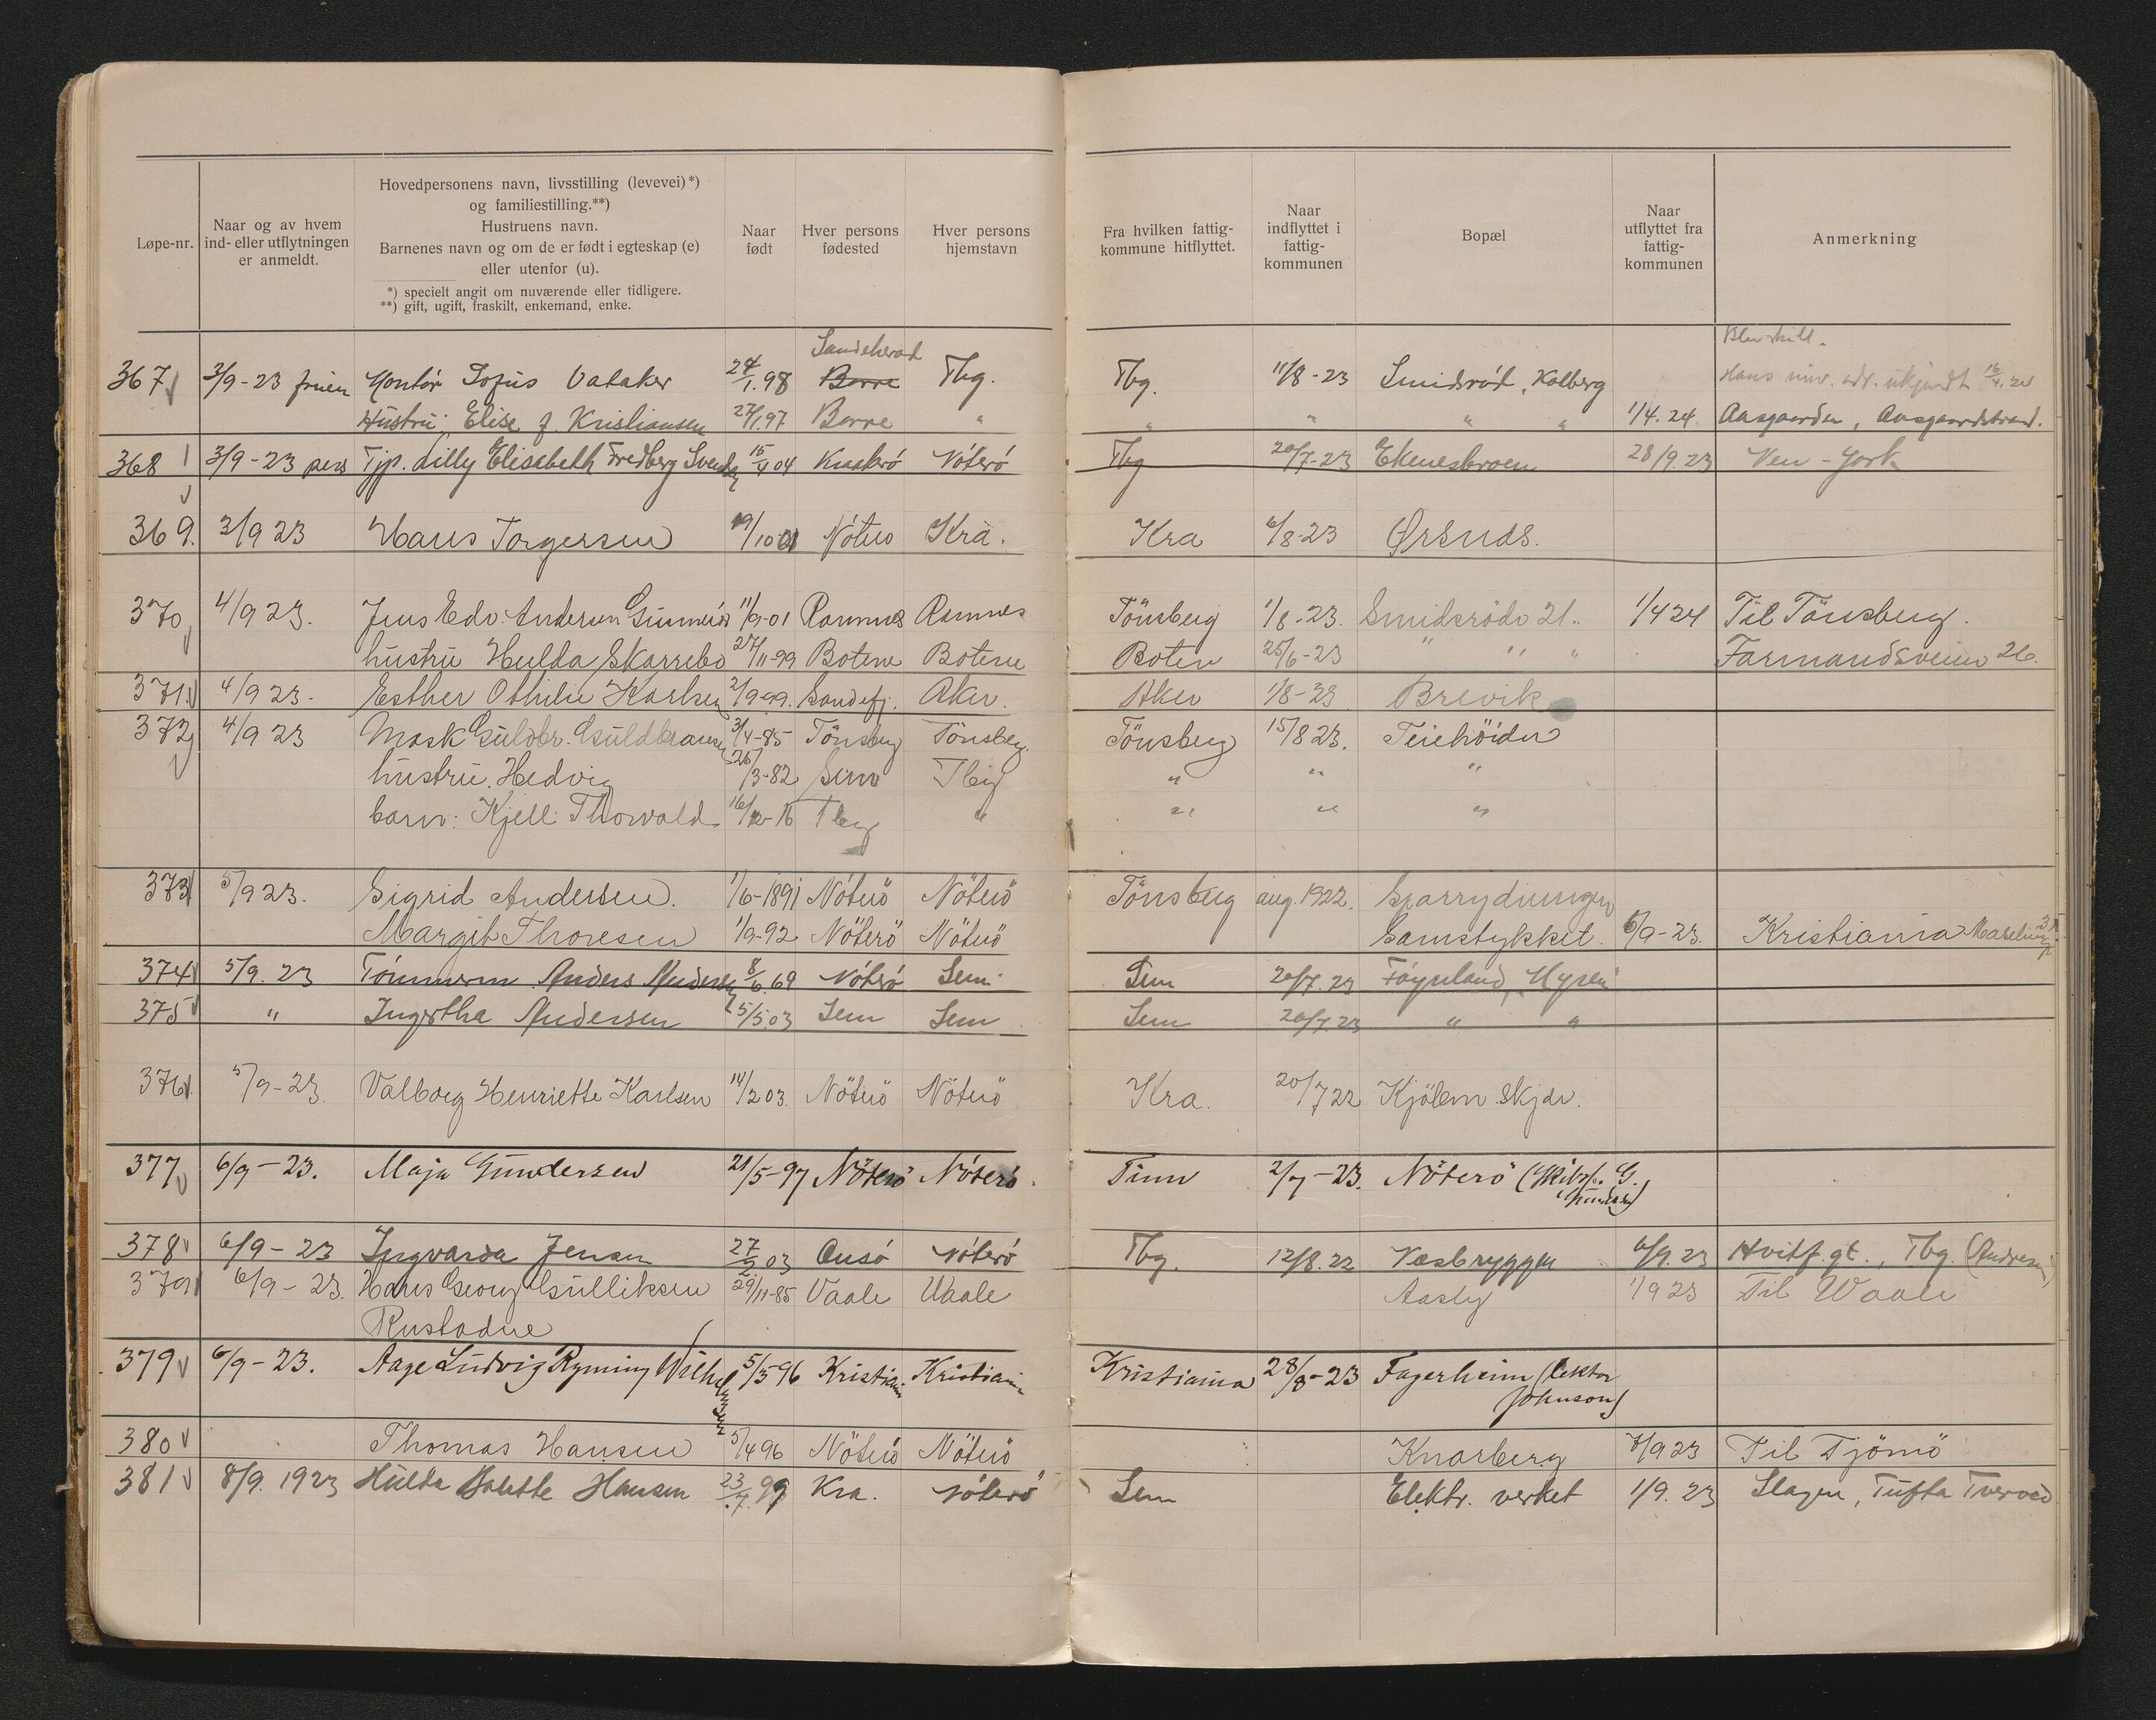 Løpe-nr.
Naar og av hvem
ind- eller utflytningen
er anmeldt.
Hovedpersonens navn, livsstilling (levevei)*)
og familiestilling.**)
Hustruens navn.
Barnenes navn og om de er født i egteskap (e)
eller utenfor (u).
*) specielt angit om nuværende eller tidligere.
**) gift, ugift, fraskilt, enkemand, enke.
Naar
født
Hver persons
fødested
Hver persons
hjemstavn
Fra hvilken fattig-
kommune hitflyttet.
Naar
indflyttet i
fattig-
kommunen
Bopæl
Naar
utflyttet fra
fattig-
kommunen
Anmerkning
Sandeherad
367 3/9-23 fruen Kontór Sofus Vataker 24/1.98 Borre Tbg. Tbg. 11/8-23 Smidsród, Kolberg Hans ukjendt 16/4.24
Hustru Elise f. Kristiansen 27/1.97 Borre " " " " " 1/4.24. Aasgaarden, Aasgaardstrand.
368 3/9-23 pers Typ. Lilly Elisabeth Fredberg Svendsen 15/4 04 Nóteró Tbg 20/7-23 Ekenesbroen 28/9.23 New-York
369. 3/9 23 Hans Torgersen 19/10-01 Nóteró Kra. Kra 6/8-23 Ørsnds.
370 4/9 23. Jens Edv. Andersen 11/9-01 Ramnes Ramnes Tönsberg 1/8-23. Smidsrödv 21. 1/4 24 Til Tönsberg.
hustru Hulda Skarrebo 27/11-99 Botene Botene Boten 25/6-23 " " " Farmandsveien 26.
371. 4/9 23. Esther Othilie Karlsen 2/9-99. Sandefj. Aker. Aker 1/8-23 Brevik
372 4/9 23 Mask Guldbr. Guldbransen 3/4-85 Tönsberg Tönsberg. Tönsberg 15/8 23. Teiehöiden
hustru. Hedvig 25/3-82 Sem Tbg " " "
barn: Kjell Thorvald 16/12-16 Tbg " " " "
373 5/9 23. Sigrid Andersen. 1/6-1891 Nóteró Nöterö Tönsberg aug. 1922.
Margit Thoresen 1/9-92 Nöterö Nöterö Gamstykket. 6/9-23. Kristiania
374 5/9.23 Tómmerm. Anders Andersen 8/6.69 Nóteró Sem Sem 20/7.23 Föynland,
375 " Ingertha Andersen 5/5.03 Sem Sem Sem 20/7.23 " "
376. 5/9-23. Valborg Henriette Karlsen 14/2 03. Nöterö Nöterö Kra. 20/7 22 Kjölem skjær.
377 6/9-23. Maja Gundersen 21/5-97 Nöterö Nóteró. Tinn 2/7-23. Nöterö (Skibsf. G.
Gundersen)
378 6/9-23 Ingvarda Jensen 27/2 03 Ousó Nóteró Tbg. 12/8.22 Vesbryggen 6/9.23 Hvitf.gt., Tbg. (Andresen)
379 6/9-23. Hans Georg Gulliksen 29/11-85 Vaale Vaale Aasly 1/9 23 Til Waale
Rustadne
379 6/9-23. Aage Ludvig Ryming Wilhelmsen 5/5-96 Kristiania Kristiania Kristiania 28/8-23 Fagerheim (lektor
Johnson)
380 Thomas Hansen 5/4 96 Nöterö Nöterö Knarberg 7/9 23 Til Tjömö
381 8/9.1923 Hulda Bolette Hansen 23/7.99 Kra. Nóteró Sem Elektr. verket 1/9.23 Slagen, Tufta Tverved